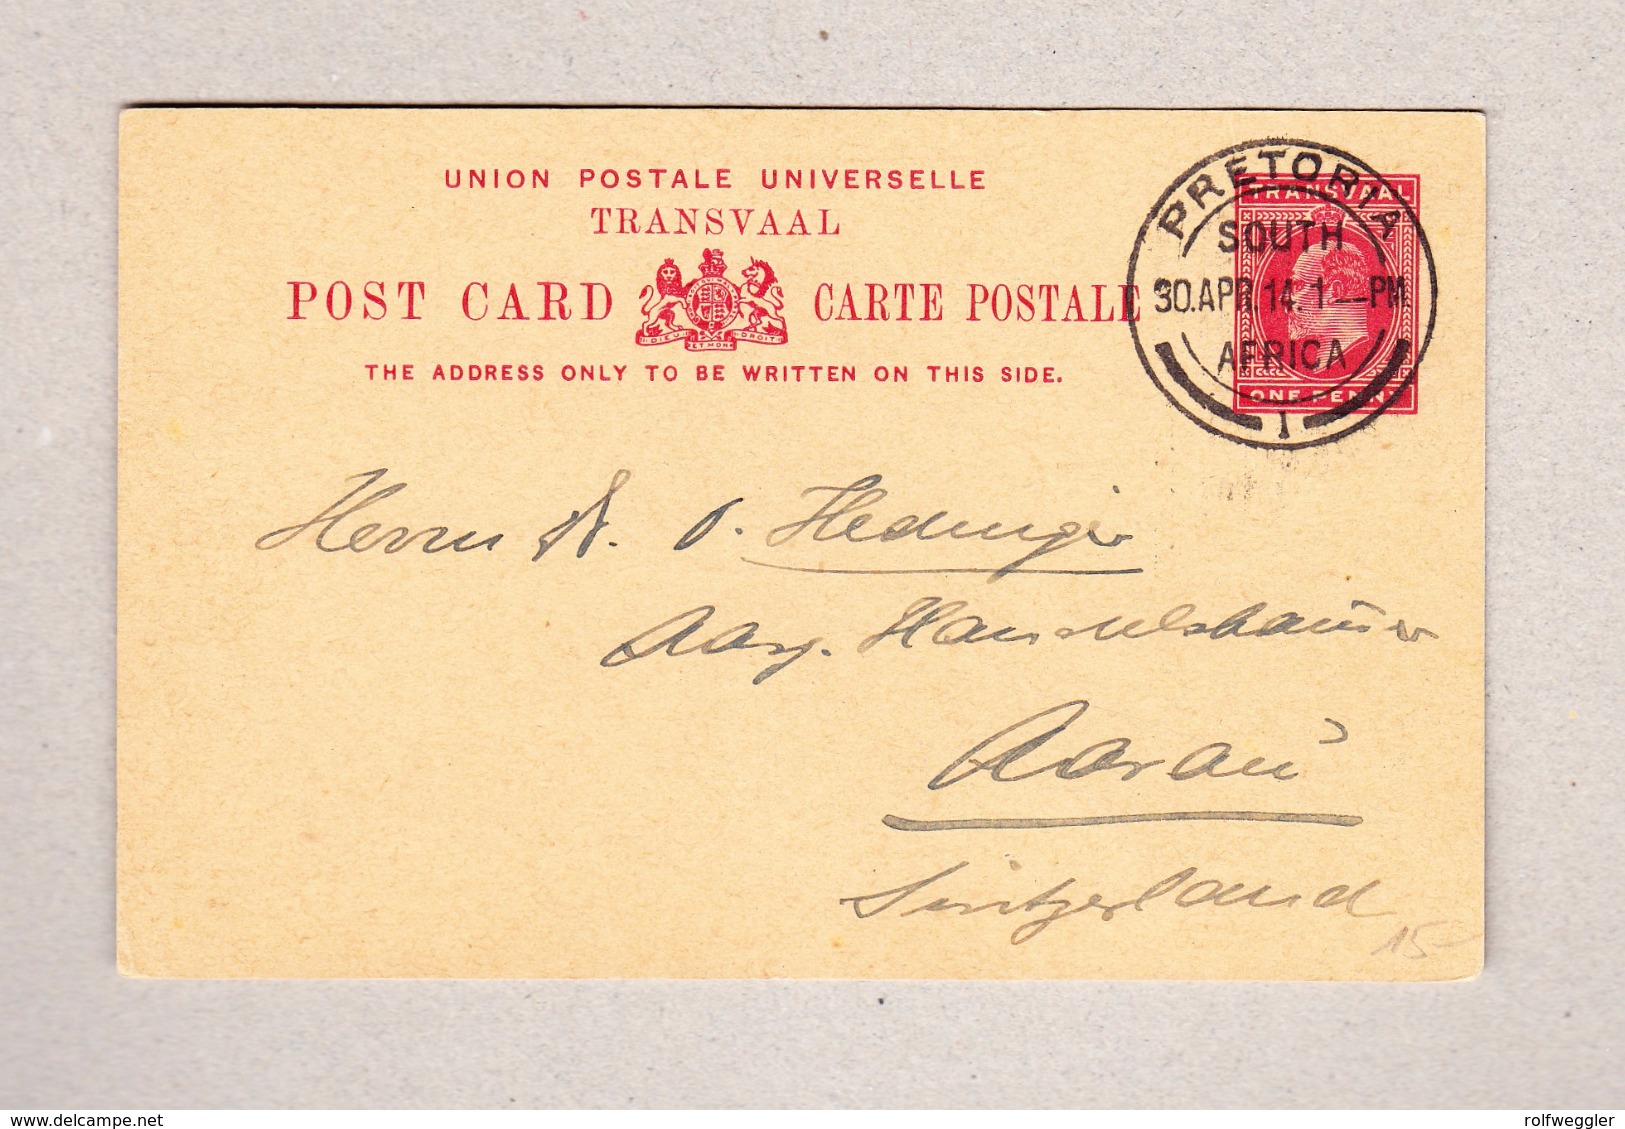 UNION POSTALE UNIVERSELLE
TRANSVAAL
POST CARD CARTE POSTALE
DIEU ET MON DROIT
THE ADDRESS ONLY TO BE WRITTEN ON THIS SIDE.
TRANSVAAL
ONE PENNY
PRETORIA
SOUTH
30.APR.14.1—PM
AFRICA
1
Herrn Dr. O. Hedinger
Aarg.
Aarau
Switzerland
15-
© delcampe.net
rolfweggler